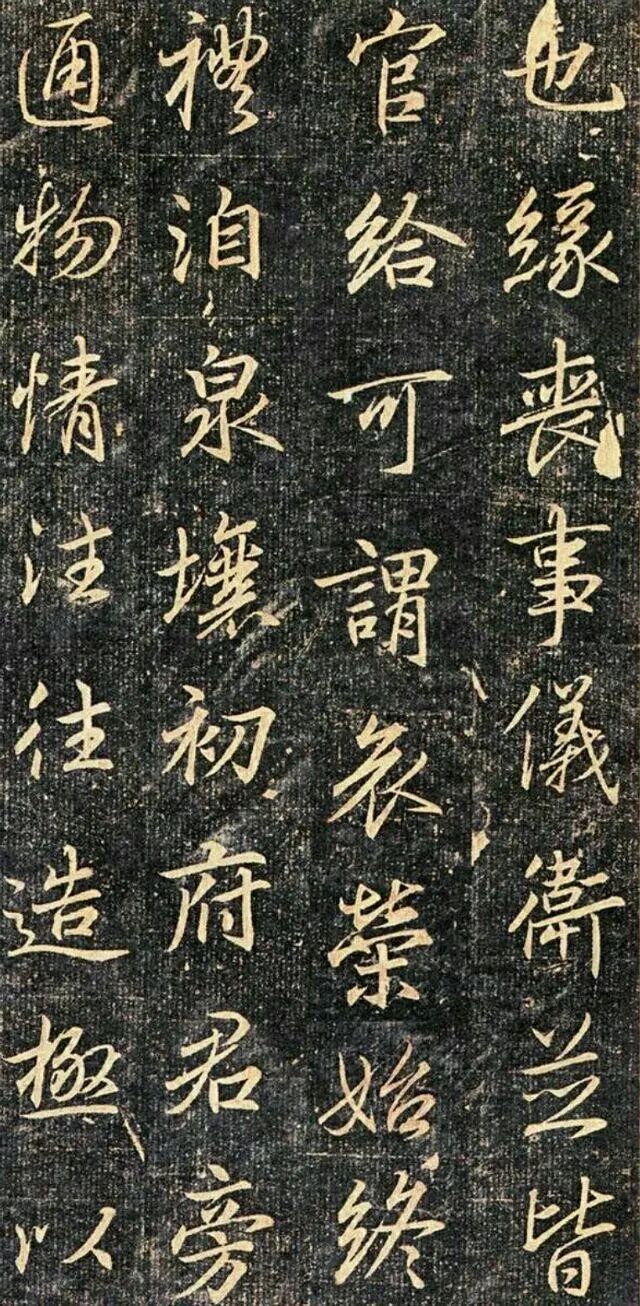 也緣喪事儀衛並皆
官給可謂哀榮始終
禮洎泉壤初府君旁
通物情注往造極以